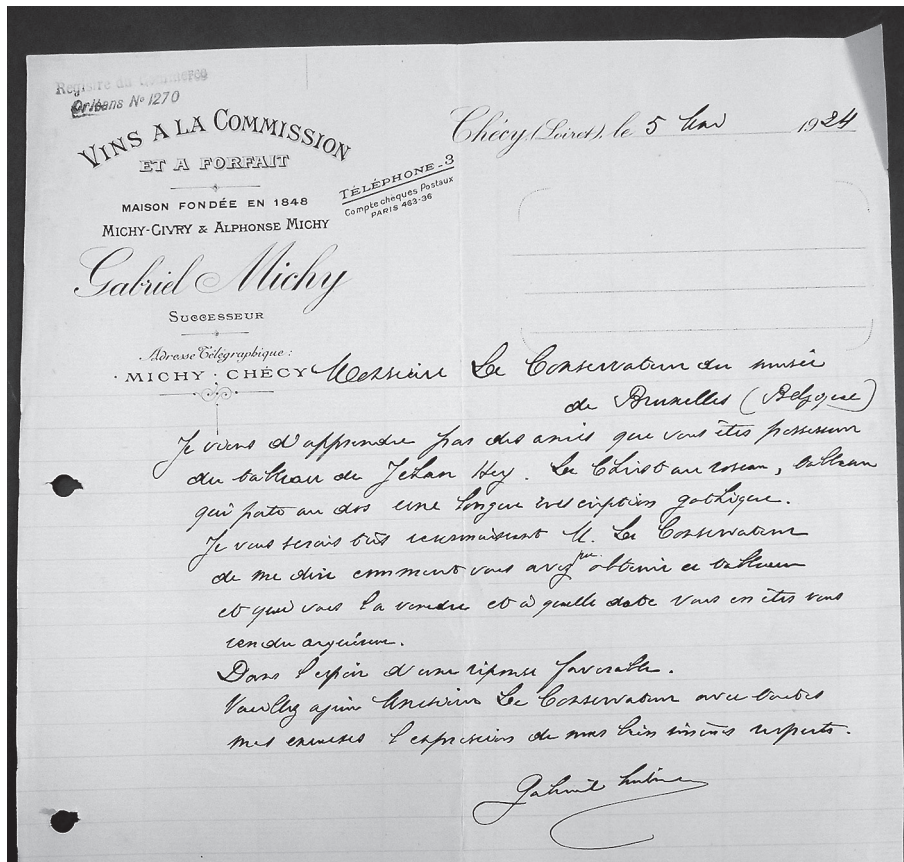 Registre du Commerce
Orléans No 1270
VINS A LA COMMISSION
ET A FORFAIT
MAISON FONDÉE EN 1848
MICHY-CIVRY & ALPHONSE MICHY
Gabriel Michy
SUCCESSEUR
Adresse Télégraphique :
MICHY · CHÉCY
TÉLÉPHONE_3
Compte cheques Postaux
PARIS 463-36
Chécy (Loiret), le 5 1924
Monsieur Le Conservateur du musée
de Bruxelles (Belgique)
Je viens d'apprendre par des amis que vous êtes possesseur
du tableau de Jehan Hey. Le Christ au roseau, tableau
qui porte au dos une longue inscription gothique.
Je vous serais très reconnaissant M. Le Conservateur
de me dire comment vous avez pu obtenir ce tableau
et qui vous l'a vendu et à quelle date vous en êtes vous
rendu acquéreur.
Dans l'espoir d'une réponse favorable.
Veuillez agréer Monsieur Le Conservateur avec toutes
mes excuses l'expression de mes bien sincères respects.
Gabriel